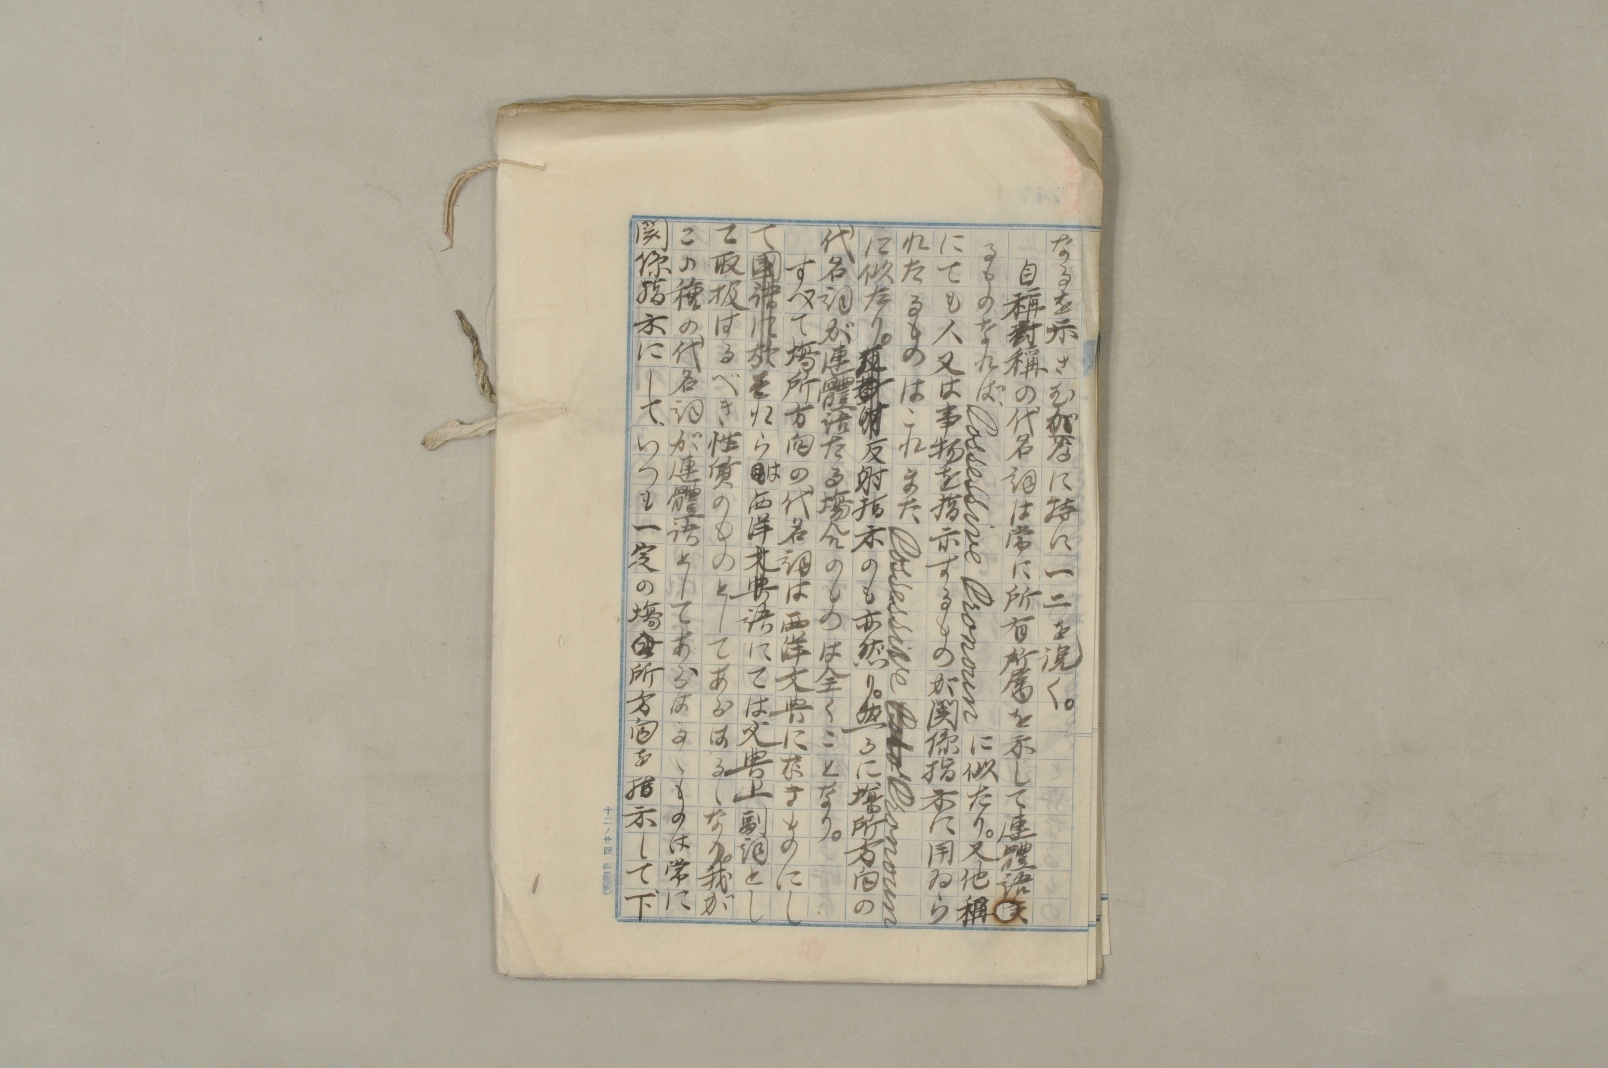 なるを示さむが為に特に一二を説く。
自稱對稱の代名詞は常に所有所屬を示して連體語た
るものなれば、Possessive Pronoun に似たり。又他稱
にても人又は事物を指示するものが関係指示に用ゐら
れたるものはこれまた Possessive Pronoun
に似たり。反射指示のも亦然り。然るに場所方向の
代名詞が連體語たる場合のものは全くことなり。
すべて場所方向の代名詞は西洋文典になきものにし
てそれらは西洋語にては文典上副詞とし
て取扱はるべき性質のものとしてあらはるゝなり。我が
この種の代名詞が連體語としてあらはるゝものは常に
関係指示にして、いつも一定の場所方向を指示して下
十二ノ廿四